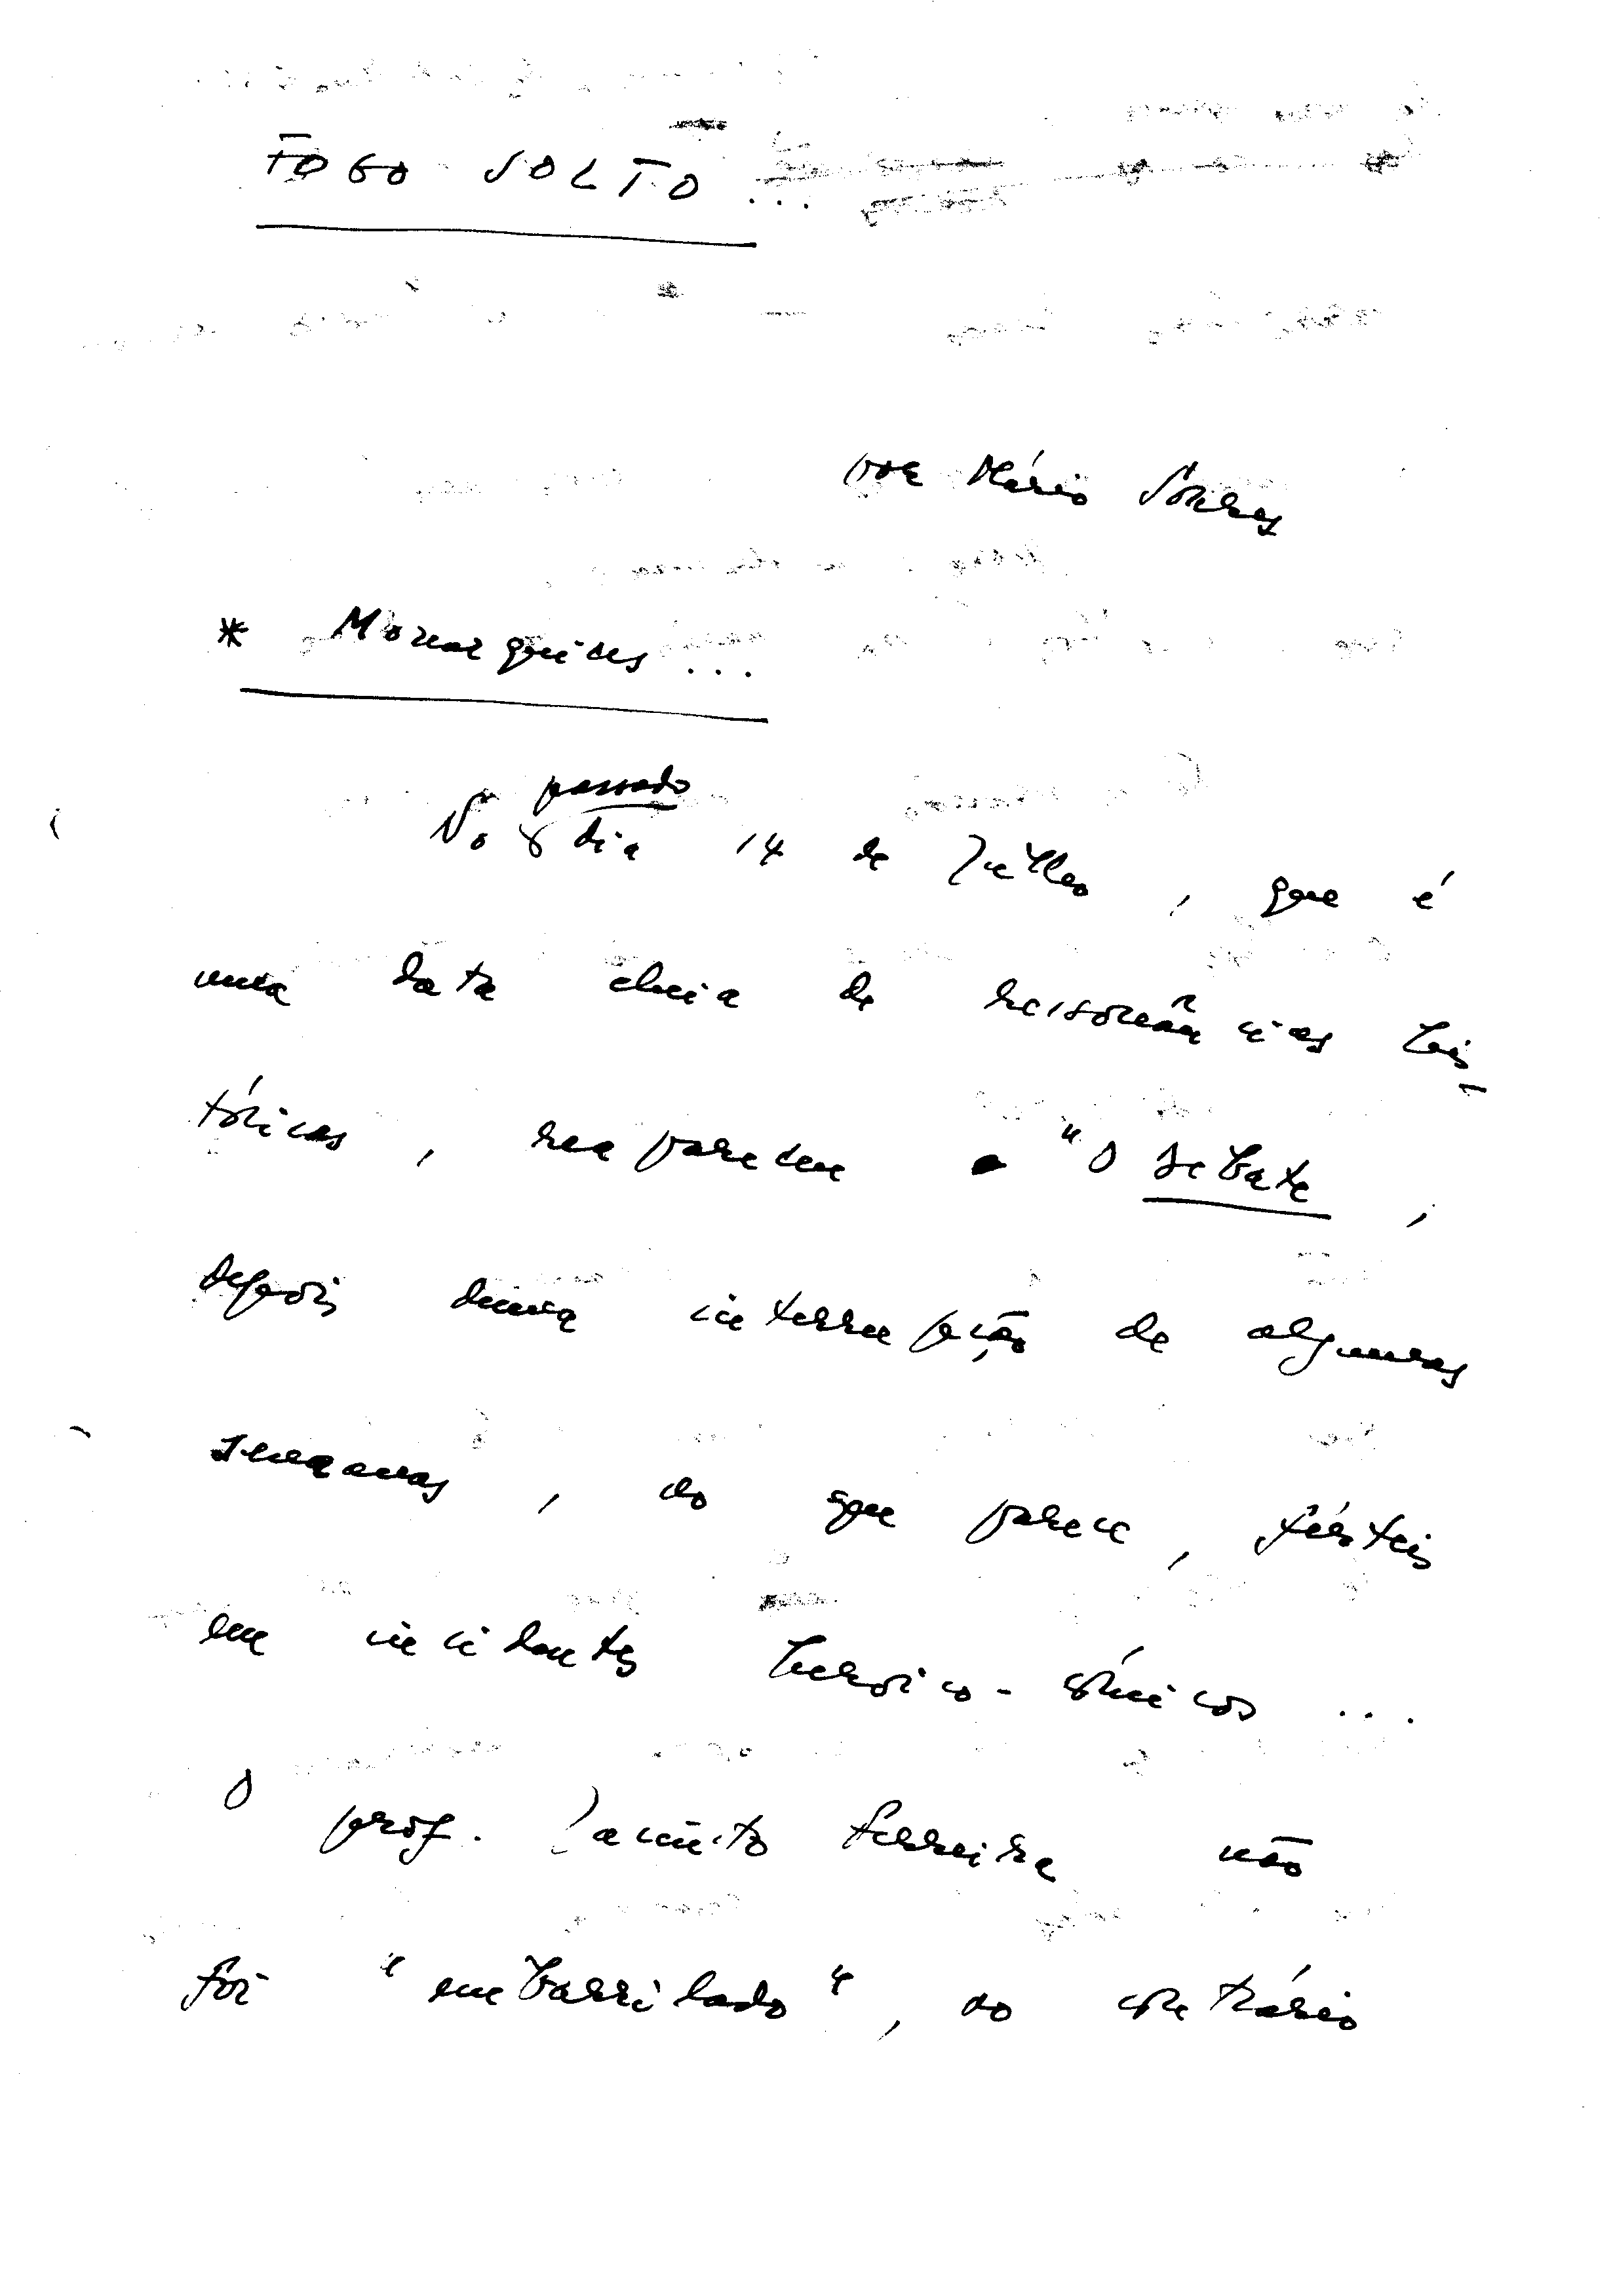 FOGO SOLTO ...
por Mário Soares
* Monarquices ...
passado
No dia 14 de Julho, que é
uma data cheia de ressonâncias his-
tóricas, reapareceu "O Debate,
depois duma interrupção de algumas
semanas, ao que parece, férteis
em incidentes heroico-cómicos ...
O prof. Jacinto Ferreira não
foi "embarrilado", ao contrário